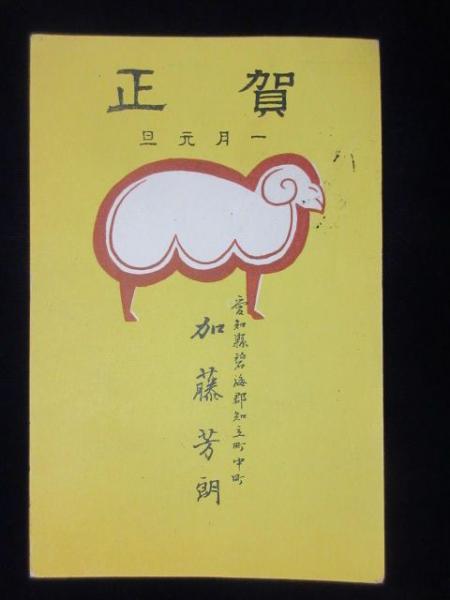 賀正
一月元旦
愛知縣碧海郡知立町中町
加藤芳朗